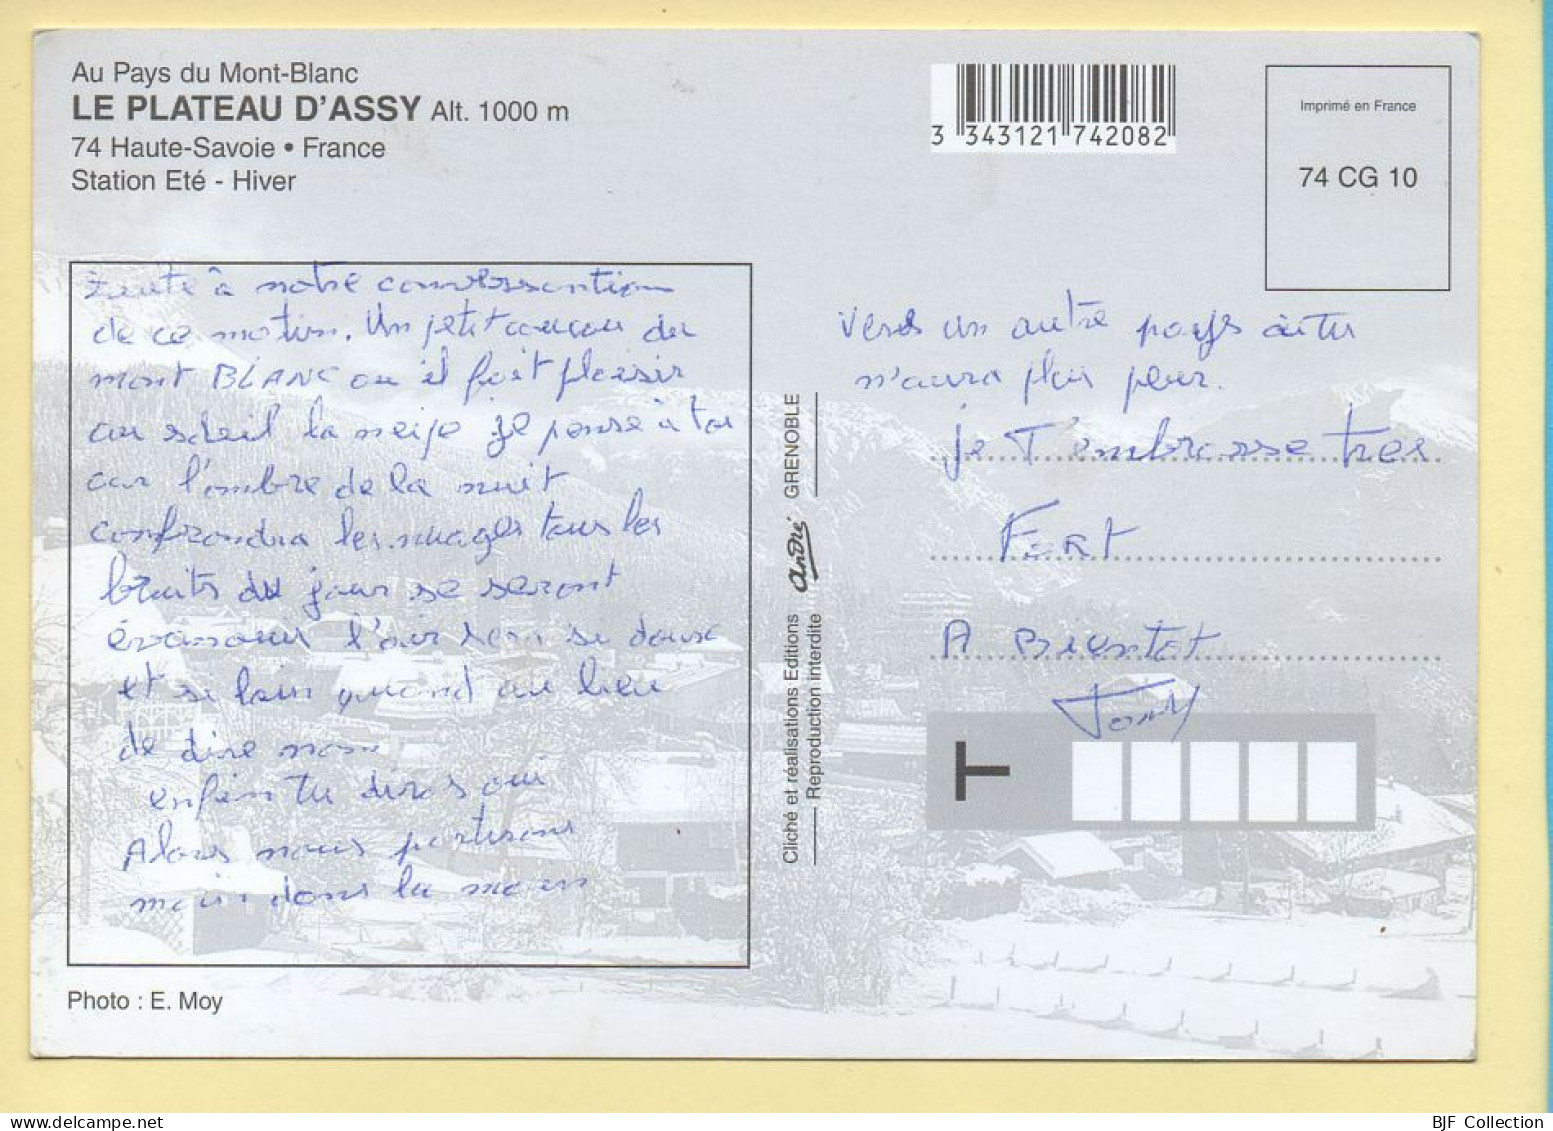 Au Pays du Mont-Blanc
LE PLATEAU D'ASSY Alt. 1000 m
74 Haute-Savoie • France
Station Eté - Hiver
3 343121 742082
Imprimé en France
74 CG 10
à notre converssantion
de ce matin. Un petit coucou du
mont BLANC ou il fait plaisir
au soleil la neige je pense à toi
car l'ombre de la nuit
confrondra les nuages tous les
bruits du jour se seront
évanouis l'air sera si douse
et si loin quand au lieu
de dire non
enfin tu diras oui
Alors nous partirons
main dans la main
Photo : E. Moy
Cliché et réalisations Editions André GRENOBLE
Reproduction interdite
Vers un autre pays où tu
n'aura plus peur.
je T'embrasse tres
Fort
A Bientot
Tony
T
BJF Collection